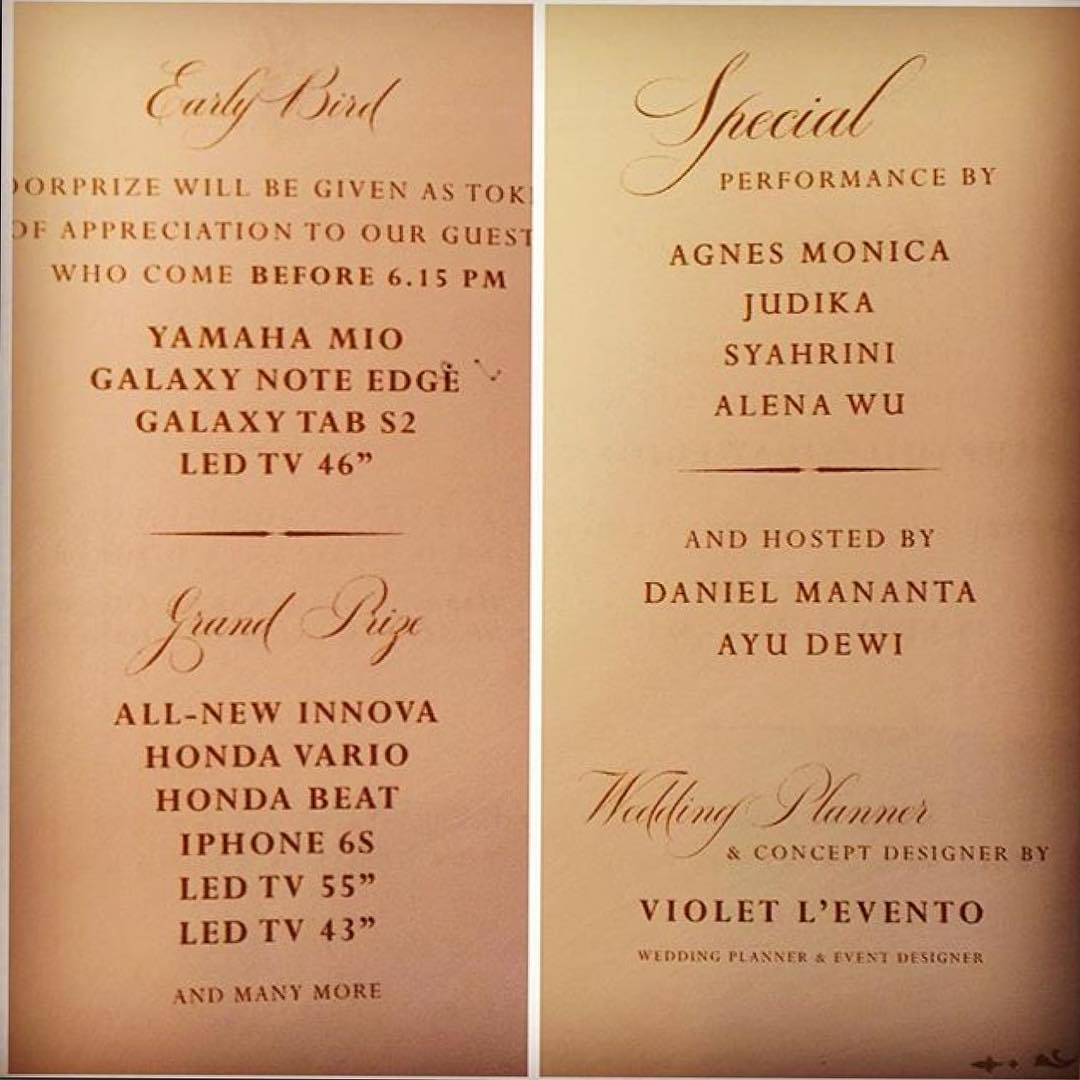 Early Bird
OORPRIZE WILL BE GIVEN AS TOK
OF APPRECIATION TO OUR GUEST
WHO COME BEFORE 6.15 PM
YAMAHA MIO
GALAXY NOTE EDGE
GALAXY TAB S2
LED TV 46”
Grand Prize
ALL-NEW INNOVA
HONDA VARIO
HONDA BEAT
IPHONE 6S
LED TV 55”
LED TV 43”
AND MANY MORE
Special
PERFORMANCE BY
AGNES MONICA
JUDIKA
SYAHRINI
ALENA WU
AND HOSTED BY
DANIEL MANANTA
AYU DEWI
Wedding Planner
& CONCEPT DESIGNER BY
VIOLET L’EVENTO
WEDDING PLANNER & EVENT DESIGNER